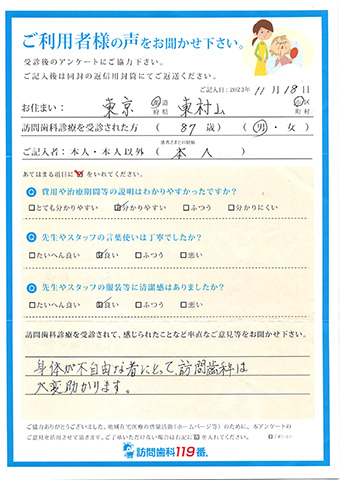 ご利用者様の声をお聞かせ下さい。
受診後のアンケートにご協力下さい。
ご記入後は同封の返信用封筒にてご返送ください。
ご記入日:2023年 11月 18日
お住まい: 東京 都道府県 東村山 市区町村
訪問歯科診療を受診された方 ( 87 歳) ( 男・女 )
ご記入者:本人・本人以外 (患者さまとの続柄 本人 )
あてはまる項目に☑をいれてください。
Q 費用や治療期間等の説明はわかりやすかったですか?
□とても分かりやすい ☑分かりやすい □ふつう □分かりにくい
Q 先生やスタッフの言葉使いは丁寧でしたか?
□たいへん良い ☑良い □ふつう □悪い
Q 先生やスタッフの服装等に清潔感はありましたか?
□たいへん良い ☑良い □ふつう □悪い
訪問歯科診療を受診されて、感じられたことなど率直なご意見等をお聞かせ下さい。
身体が不自由な者にとって訪問歯科は
大変助かります。
ご協力ありがとうございました。地域在宅医療の啓蒙活動(ホームページ等)のために、本アンケートの
ご意見を活用させて頂きます。ご了承いただけない場合は右記に☑を入れてください。
訪問歯科119番